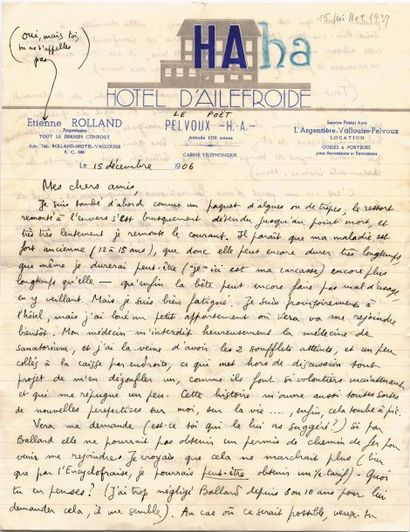 15 juillet 1939
(oui, mais toi,
tu ne t'appelles
pas
HAha
HOTEL D'AILEFROIDE
Etienne ROLLAND
Propriétaire
TOUT LE DERNIER CONFORT
Adr. Tél. ROLLAND-HOTEL-VALLOUISE
LE POET
PELVOUX -H.-A.-
Altitude 1250 mètres
CABINE TÉLÉPHONIQUE
Service Postal Auto
L'Argentière-Vallouise-Pelvoux
LOCATION
GUIDES & PORTEURS
pour Ascensions et Excursions
le 15 décembre 1906
Mes chers amis,
Je suis tombé d'abord comme un paquet d'algues ou de tripes, le ressort
remonté à l'envers s'est brusquement détendu jusqu'au point mort, et
très très lentement je remonte le courant. Il paraît que ma maladie est
fort ancienne (12 à 15 ans), que donc elle peut encore durer très longtemps
que même je durerai peut-être ("je" ici est ma carcasse) encore plus
longtemps qu'elle — qu'enfin la bête peut encore faire pas mal d'usage,
en y veillant. Mais je suis bien fatigué. Je suis provisoirement à
l'hôtel, mais j'ai loué un petit appartement où Vera va me rejoindre
bientôt. Mon médecin m'interdit heureusement la médecine de
sanatorium, et j'ai la veine d'avoir les 2 soufflets atteints, et un peu
collés à la caisse par endroits, ce qui met hors de discussion tout
projet de m'en dégonfler un, comme ils font si volontiers maintenant
et qui me répugne un peu. Cette histoire m'ouvre aussi toutes sortes
de nouvelles perspectives sur moi, sur la vie ...., enfin, cela tombe à pic.
Vera me demande (est-ce toi qui le lui as suggéré?) si par
Ballard elle ne pourrait pas obtenir un permis de chemin de fer pour
venir me rejoindre. Je croyais que cela ne marchait plus (bien
que par l'Encyclofraise, je pourrais peut-être obtenir un ½ tarif) – Quoi
tu en penses? (J'ai trop négligé Ballard depuis 8 ou 10 ans pour lui
demander cela, il me semble). Au cas où ce serait possible, veux-tu